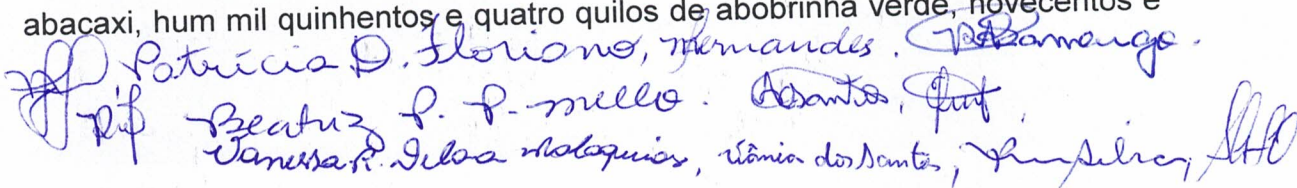 abacaxi, hum mil quinhentos e quatro quilos de abobrinha verde, novecentos e
Patrícia D. Floriano, Fernandes. RBCamargo.
Beatriz P. P. mello. ASantos,
Vanessa R. Silva Malaquias, Vânia dos Santos, Silva,